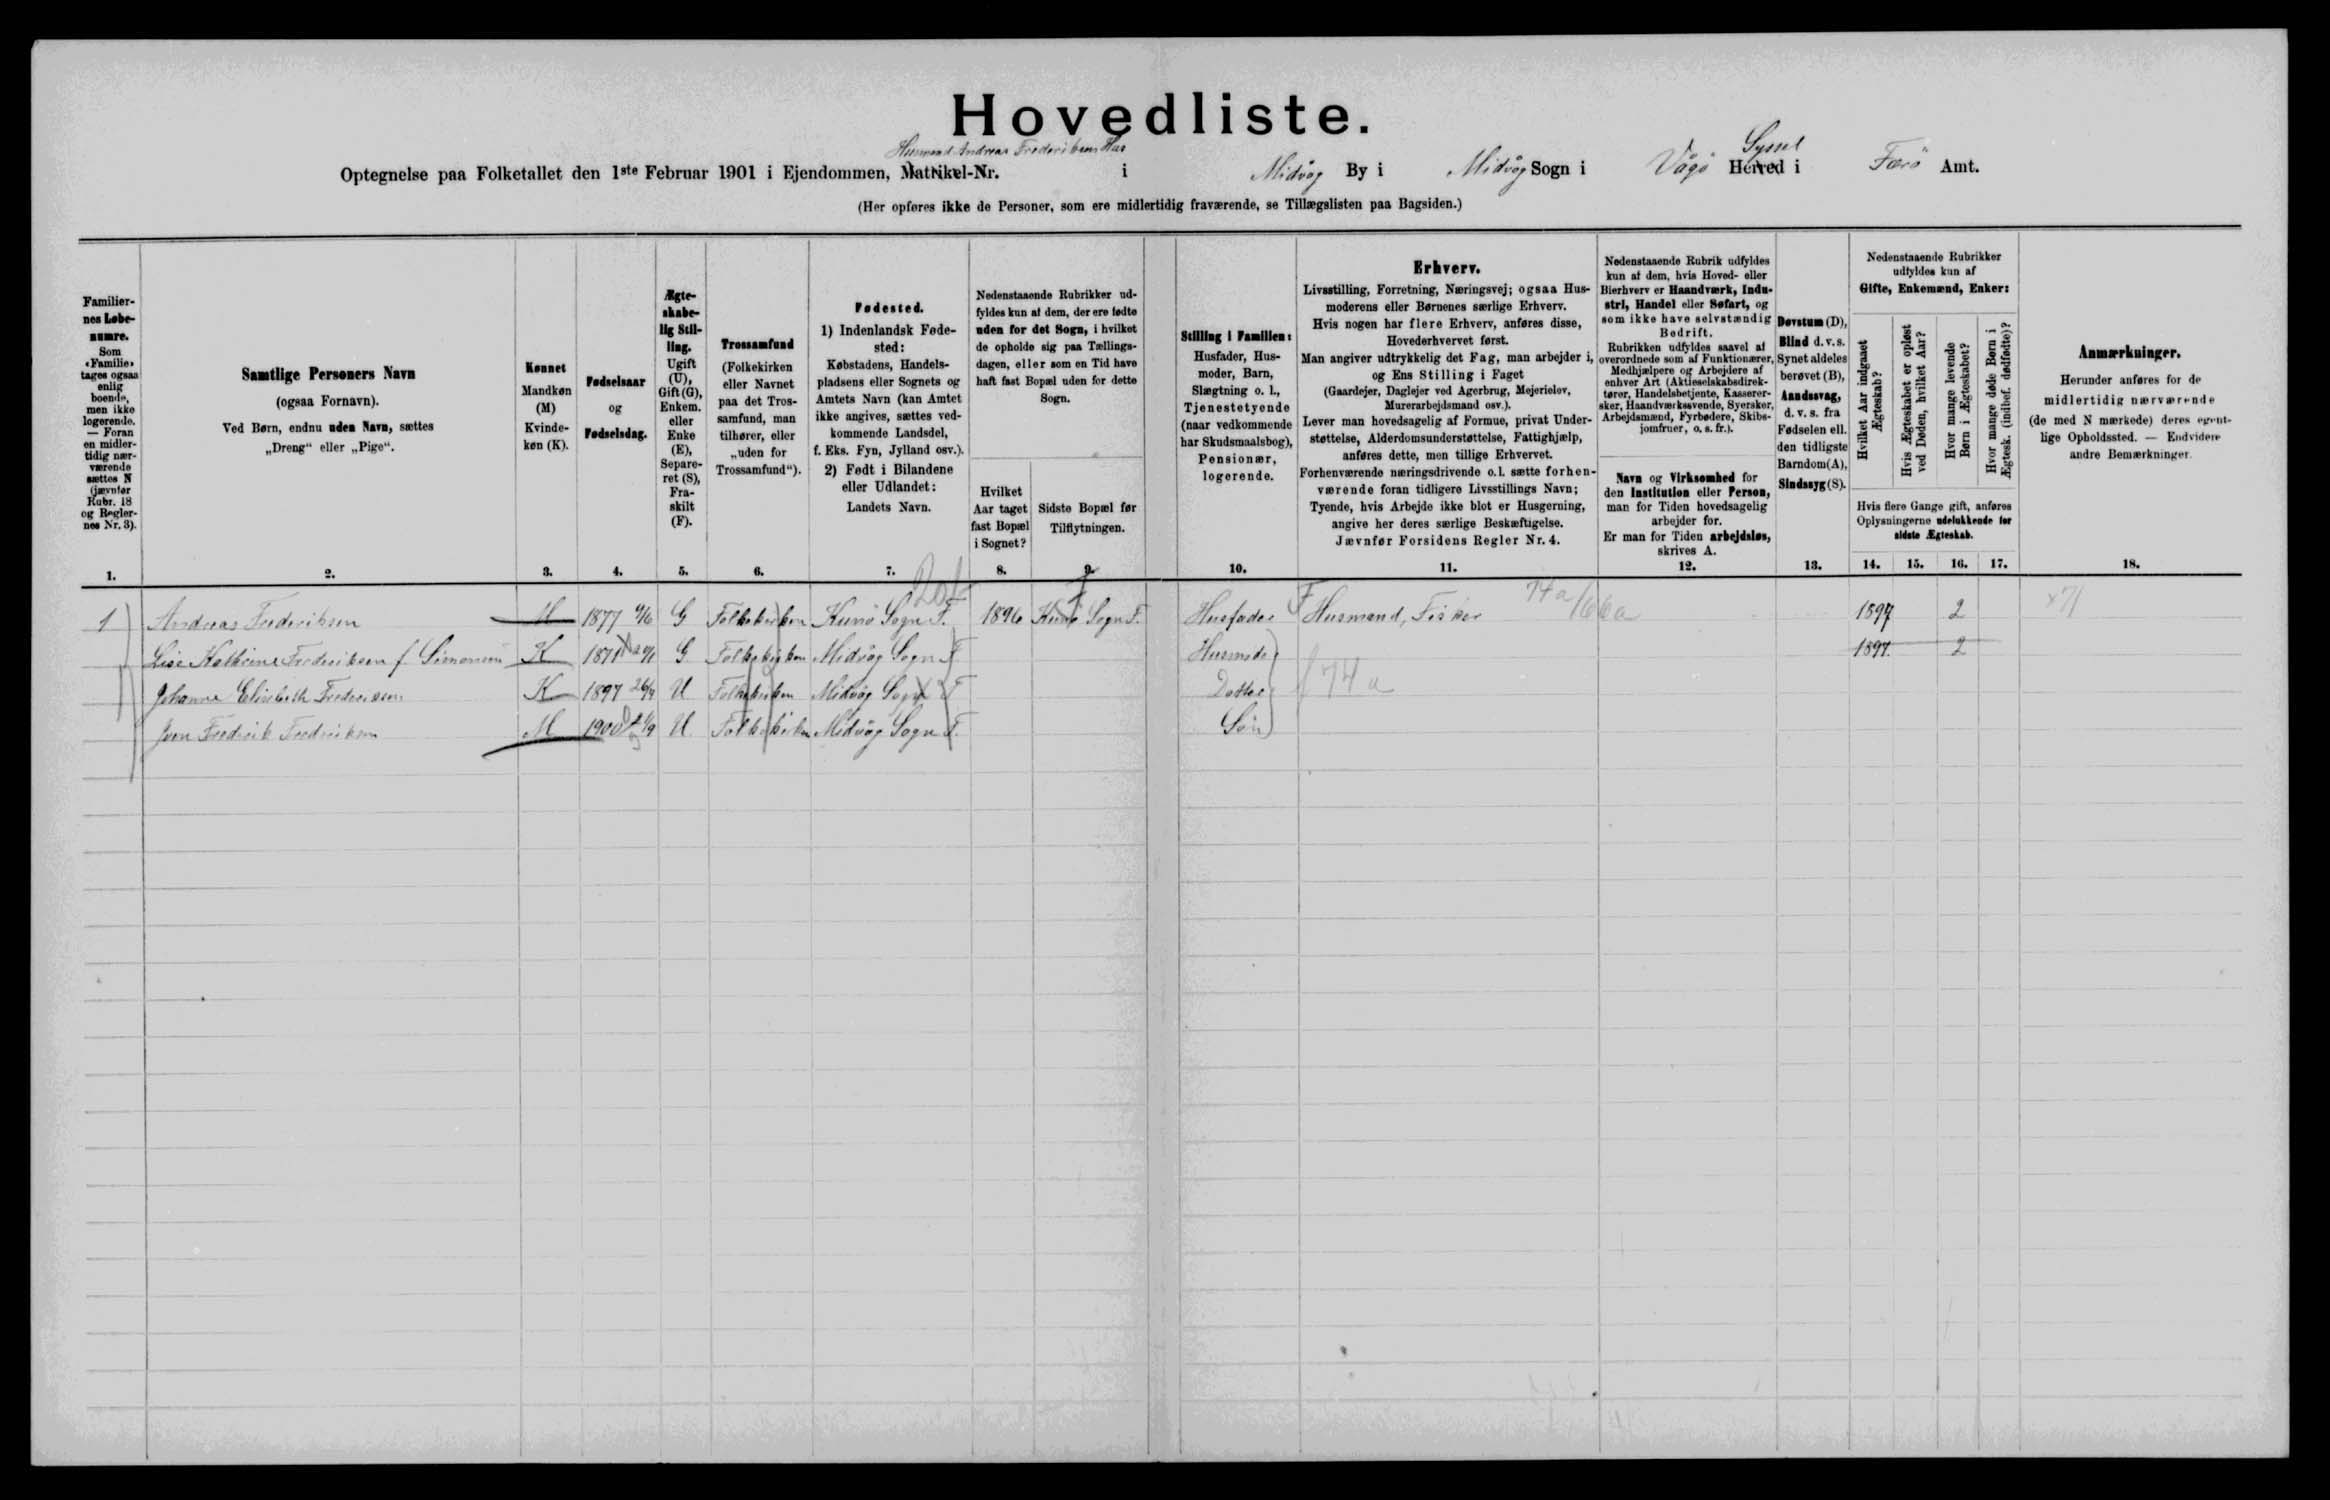 Hovedliste.
Husmand Andreas Frederiksens Hus
Syssel
Optegnelse paa Folketallet den 1ste Februar 1901 i Ejendommen, Matrikel-Nr. i Midvåg By i Midvåg Sogn i Vågø Herred i Færø Amt.
(Her opføres ikke de Personer, som ere midlertidig fraværende, se Tillægslisten paa Bagsiden.)
Familier-
nes Løbe-
numre.
Som
«Familie»
tages ogsaa
enlig
boende,
men ikke
logerende.
— Foran
en midler-
tidig nær-
værende
sættes N
(jævnfør
Rubr. 18
og Regler-
nes Nr. 3).
1.
Samtlige Personers Navn
(ogsaa Fornavn).
Ved Børn, endnu uden Navn, sættes
„Dreng“ eller „Pige“.
2.
Kønnet
Mandkøn
(M)
Kvinde-
køn (K).
3.
Fødselsaar
og
Fødselsdag.
4.
Ægte-
skabe-
lig Stil-
ling.
Ugift
(U),
Gift (G),
Enkem.
eller
Enke
(E),
Separe-
ret (S),
Fra-
skilt
(F).
5.
Trossamfund
(Folkekirken
eller Navnet
paa det Tros-
samfund, man
tilhører, eller
„uden for
Trossamfund“).
6.
Fødested.
1) Indenlandsk Føde-
sted:
Købstadens, Handels-
pladsens eller Sognets og
Amtets Navn (kan Amtet
ikke angives, sættes ved-
kommende Landsdel,
f. Eks. Fyn, Jylland osv.).
2) Født i Bilandene
eller Udlandet:
Landets Navn.
7.
Nedenstaaende Rubrikker ud-
fyldes kun af dem, der ere fødte
uden for det Sogn, i hvilket
de opholde sig paa Tællings-
dagen, eller som en Tid have
haft fast Bopæl uden for dette
Sogn.
Hvilket
Aar taget
fast Bopæl
i Sognet?
8.
Sidste Bopæl før
Tilflytningen.
9.
Stilling i Familien:
Husfader, Hus-
moder, Barn,
Slægtning o. l.,
Tjenestetyende
(naar vedkommende
har Skudsmaalsbog),
Pensionær,
logerende.
10.
Erhverv.
Livsstilling, Forretning, Næringsvej; ogsaa Hus-
moderens eller Børnenes særlige Erhverv.
Hvis nogen har flere Erhverv, anføres disse,
Hovederhvervet først.
Man angiver udtrykkelig det Fag, man arbejder i,
og Ens Stilling i Faget
(Gaardejer, Daglejer ved Agerbrug, Mejerielev,
Murerarbejdsmand osv.).
Lever man hovedsagelig af Formue, privat Under-
støttelse, Alderdomsunderstøttelse, Fattighjælp,
anføres dette, men tillige Erhvervet.
Forhenværende næringsdrivende o.l. sætte forhen-
værende foran tidligere Livsstillings Navn;
Tyende, hvis Arbejde ikke blot er Husgerning,
angive her deres særlige Beskæftigelse.
Jævnfør Forsidens Regler Nr. 4.
11.
Nedenstaaende Rubrik udfyldes
kun af dem, hvis Hoved- eller
Bierhverv er Haandværk, Indu-
stri, Handel eller Søfart, og
som ikke have selvstændig
Bedrift.
Rubrikken udfyldes saavel af
overordnede som af Funktionærer,
Medhjælpere og Arbejdere af
enhver Art (Aktieselskabsdirek-
tører, Handelsbetjente, Kasserer-
sker, Haandværkssvende, Syersker,
Arbejdsmænd, Fyrbødere, Skibs-
jomfruer, o. s. fr.).
Navn og Virksomhed for
den Institution eller Person,
man for Tiden hovedsagelig
arbejder for.
Er man for Tiden arbejdsløs,
skrives A.
12.
Døvstum (D),
Blind d. v. s.
Synet aldeles
berøvet (B),
Aandssvag,
d. v. s. fra
Fødselen ell.
den tidligste
Barndom (A),
Sindssyg (S).
13.
Nedenstaaende Rubrikker
udfyldes kun af
Gifte, Enkemænd, Enker:
Hvilket Aar indgaaet
Ægteskab?
Hvis Ægteskabet er opløst
ved Døden, hvilket Aar?
Hvor mange levende
Børn i Ægteskabet?
Hvor mange døde Børn i
Ægtesk. (indbef. dødfødte)?
Hvis flere Gange gift, anføres
Oplysningerne udelukkende for
sidste Ægteskab.
14. 15. 16. 17.
Anmærkninger.
Herunder anføres for de
midlertidig nærværende
(de med N mærkede) deres egent-
lige Opholdssted. — Endvidere
andre Bemærkninger.
18.
1 Andreas Frederiksen M 1877 G Folkekirken Kunø Sogn F. 1896 Kunø Sogn F. Husfader F Husmand, Fisker 74 a/66a 1897 2 x71
Lise Kathrine Frederiksen f. Simonsen K 1871 G Folkekirken Midvåg Sogn F Husmoder 1897. 2
Johanne Elisabeth Frederiksen K 1897 26/4 U Folkekirken Midvåg Sogn F Datter 74 a
Frederik Frederiksen M 1900 U. Folkekirken Midvåg Sogn F. Søn